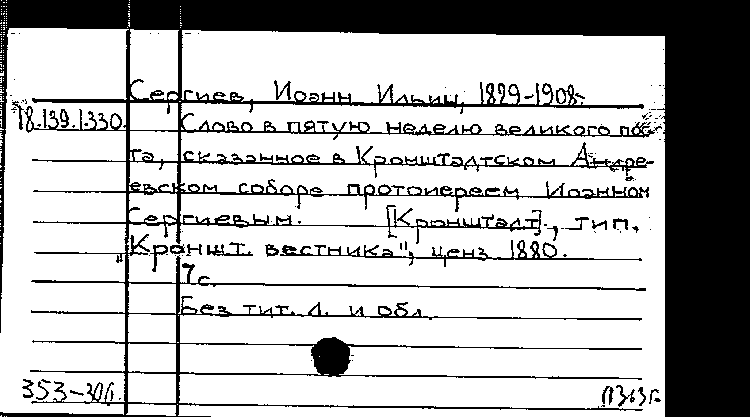 Сергиев, Иоанн Ильич, 1829-1908.
18.139.1.330.
Слово в пятую неделю великого пос-
та, сказанное в Кронштадтском Андре-
евском соборе протоиереем Иоанном
Сергиевым. [Кронштадт], тип.
"Кроншт. вестника", ценз 1880.
7с.
Без тит. л. и обл.